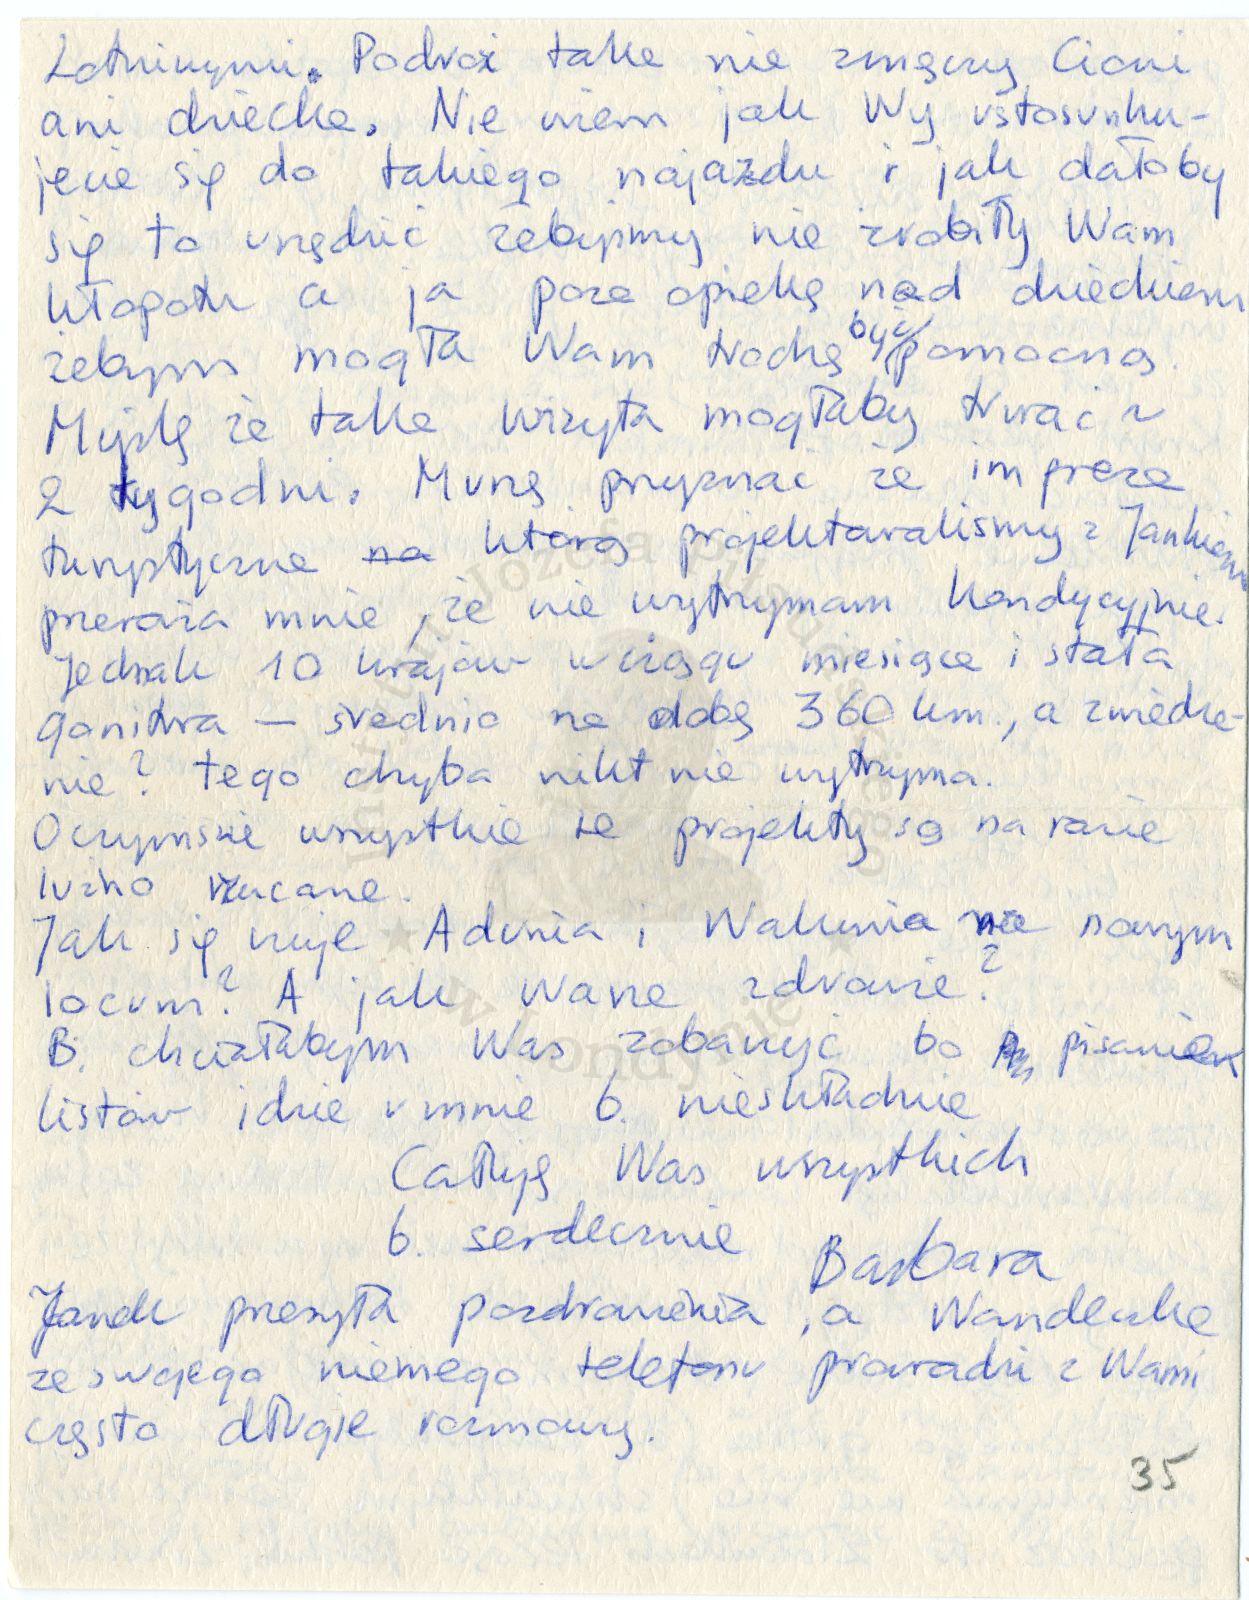 Lotniczymi. Podróż taka nie zmęczy Cioci
ani dziecka. Nie wiem jak Wy ustosunku-
jecie się do takiego najazdu i jak dałoby
się to urządzić żebyśmy nie zrobiły Wam
kłopotu a ja poza opieką nad dzieckiem
żebym mogła Wam trochę być pomocną.
Myślę że taka wizyta mogłaby trwać ~
2 tygodni. Muszę przyznać że impreza
turystyczna na którą projektowaliśmy z Jankiem
przeraża mnie, że nie wytrzymam kondycyjnie.
Jednak 10 krajów w ciągu miesiąca i stała
gonitwa — średnio na dobę 360 km., a zwiedza-
nie? tego chyba nikt nie wytrzyma.
Oczywiście wszystkie te projekty są na razie
luźno rzucane.
Jak się czuje Adunia i Walunia na nowym
locum? A jak Wasze zdrowie?
B. chciałabym Was zobaczyć bo pisanie
listów idzie u mnie b. nieskładnie
Całuję Was wszystkich
b. serdecznie
Barbara
Janek przesyła pozdrowienia, a Wandeczka
ze swojego niemego telefonu prowadzi z Wami
często długie rozmowy.
35
Instytut Józefa Piłsudskiego
w Londynie